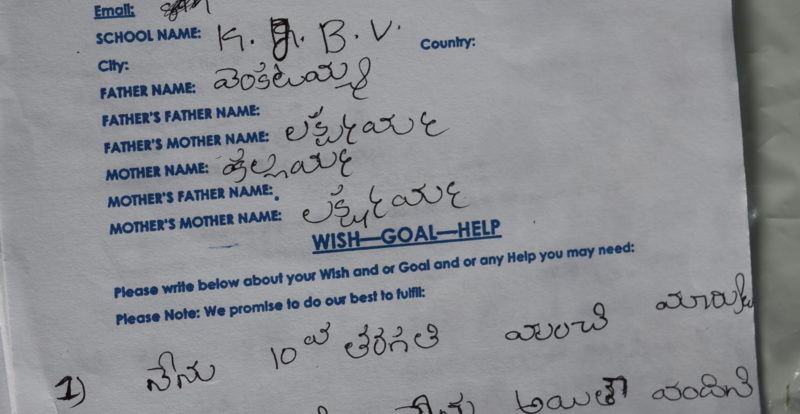 Email:
SCHOOL NAME: K. G. B. V.
City: Country:
FATHER NAME: వెంకటయ్య
FATHER'S FATHER NAME:
FATHER'S MOTHER NAME: లక్ష్మయమ్మ
MOTHER NAME:
MOTHER'S FATHER NAME:
MOTHER'S MOTHER NAME: లక్ష్మయమ్మ
WISH—GOAL—HELP
Please write below about your Wish and or Goal and or any Help you may need:
Please Note: We promise to do our best to fulfill:
1) నేను 10వ తరగతి మంచి మార్కు